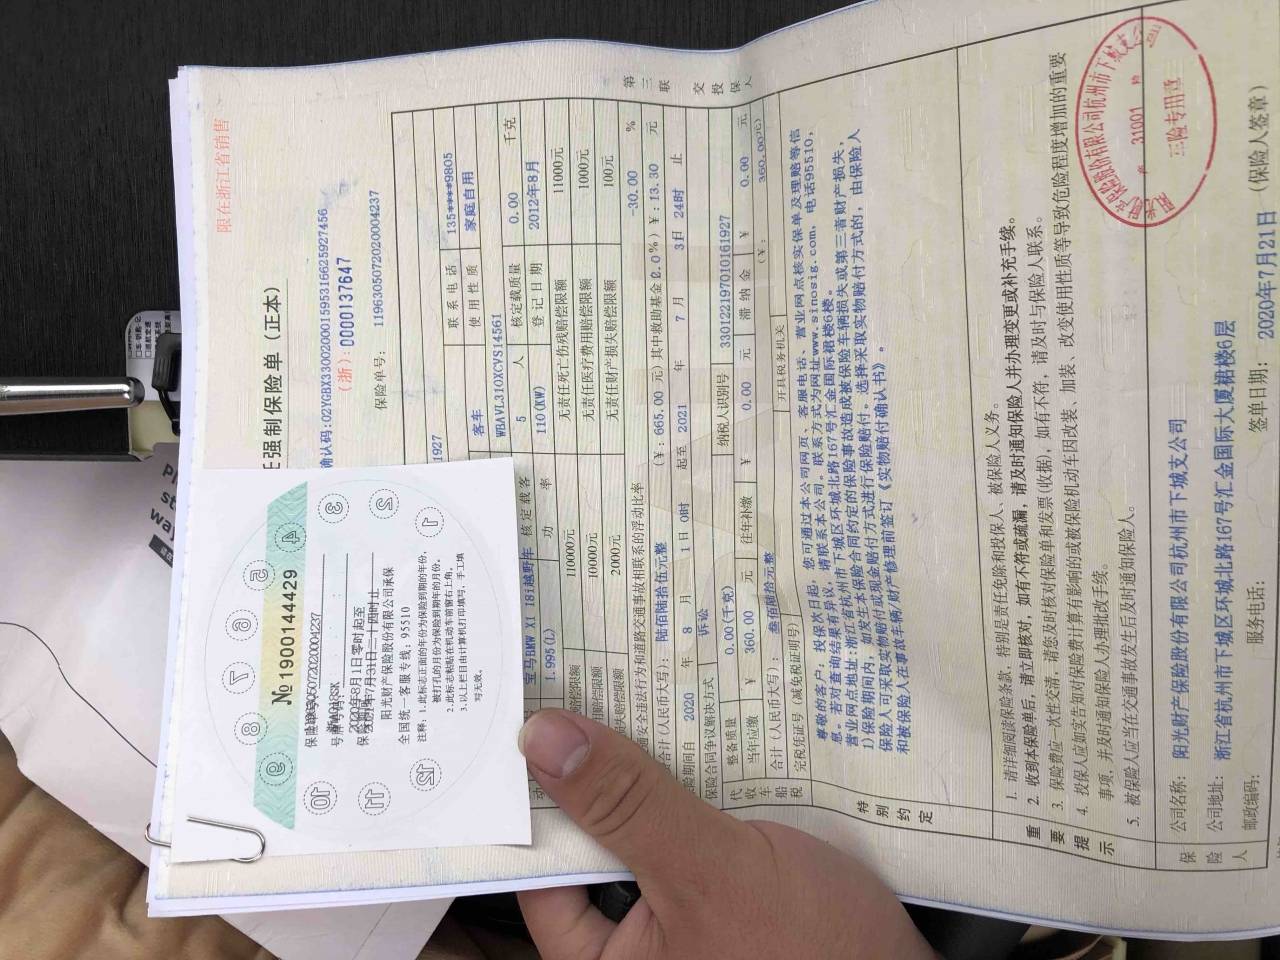 限在浙江省销售
强制保险单 (正本)
确认码:02YGBX330020001595316625927456
(浙):0000137647
保险单号: 1196305072020004237
1927
联系电话 135****9805
客车 使用性质 家庭自用
WBAVL310XCVS14561
核定载客 5 人 核定载质量 0.00 千克
宝马BMW X1 18i越野车
1.995(L) 功率 110(KW) 登记日期 2012年8月
110000元 无责任死亡伤残赔偿限额 11000元
10000元 无责任医疗费用赔偿限额 1000元
2000元 无责任财产损失赔偿限额 100元
安全违法行为和道路交通事故相联系的浮动比率 -30.00 %
合计(人民币大写): 陆佰陆拾伍元整 (¥: 665.00 元)其中救助基金(2.0%)¥:13.30 元
险期间自 2020 年 8 月 1 日 0时 起至 2021 年 7 月 3 日 24时 止
保险合同争议解决方式 诉讼
代收车船税
整备质量 0.00(千克) 纳税人识别号 330122197010161927
当年应缴 ¥ 360.00 元 往年补缴 ¥ 0.00 元 滞纳金 ¥ 0.00 元
合计(人民币大写): 叁佰陆拾元整 (¥: 360.00元)
完税凭证号(减免税证明号) 开具税务机关
特别约定
尊敬的客户: 投保次日起, 您可通过本公司网页、客服电话、营业网点核实保单及理赔等信
息。若对查询结果有异议, 请联系本公司。联系方式为网址www.sinosig.com, 电话95510,
营业网点地址:浙江省杭州市下城区环城北路167号汇金国际裙楼6楼。
1)保险期间内, 如发生本保险合同约定的保险事故造成被保险车辆损失或第三者财产损失,
保险人可采取实物赔付或现金赔付方式进行保险赔付。选择采取实物赔付方式的, 由保险人
和被保险人在事故车辆/财产修理前签订《实物赔付确认书》。
重要提示
1. 请详细阅读保险条款, 特别是责任免除和投保人、被保险人义务。
2. 收到本保险单后, 请立即核对, 如有不符或疏漏, 请及时通知保险人并办理变更或补充手续。
3. 保险费应一次性交清, 请您及时核对保险单和发票(收据), 如有不符, 请及时与保险人联系。
4. 投保人应如实告知对保险费计算有影响的或被保险机动车因改装、加装、改变使用性质等导致危险程度增加的重要
事项, 并及时通知保险人办理批改手续。
5. 被保险人应当在交通事故发生后及时通知保险人。
保险人
公司名称: 阳光财产保险股份有限公司杭州市下城支公司
公司地址: 浙江省杭州市下城区环城北路167号汇金国际大厦裙楼6层
邮政编码: 服务电话: 签单日期: 2020年7月21日 (保险人签章)
第三联 交投保人
31001
三险专用章
№1900144429
1 2 3 4 5 6 7 8 9 10 11 12
保险期间 2020年8月1日零时起至
7月31日二十四时止
阳光财产保险股份有限公司承保
全国统一客服专线: 95510
注释: 1.此标志正面的年份为保险到期的年份,
被打孔的月份为保险到期年的月份。
2.此标志粘贴在机动车前窗右上角。
3.以上栏目由计算机打印填写, 手工填
写无效。